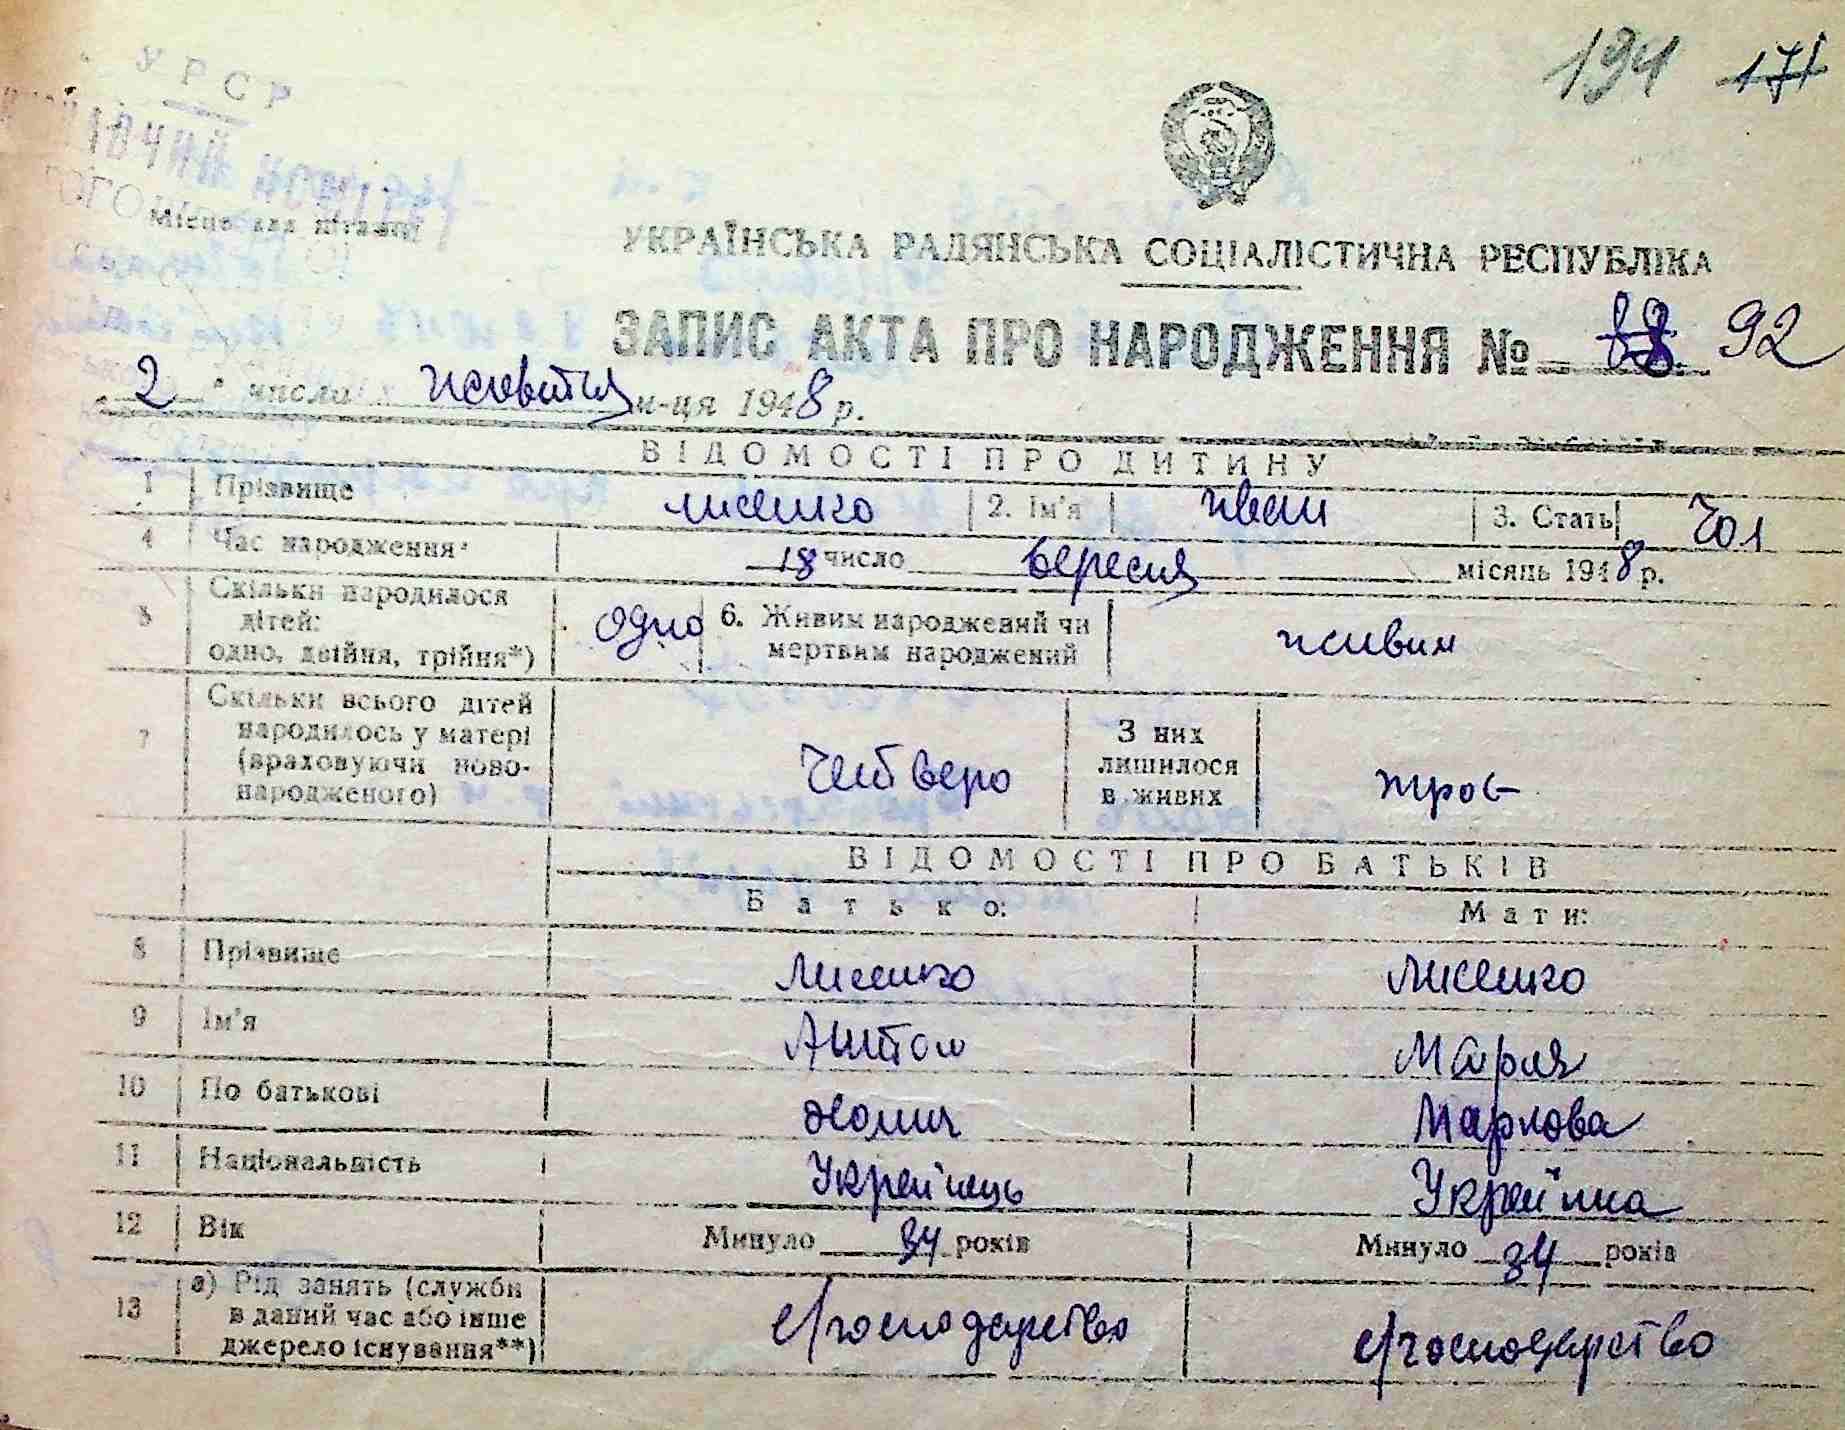 194 171
УРСР
Місце для штампу
УКРАЇНСЬКА РАДЯНСЬКА СОЦІАЛІСТИЧНА РЕСПУБЛІКА
ЗАПИС АКТА ПРО НАРОДЖЕННЯ № 88 92
2 числа жовтня м-ця 1948 р.
ВІДОМОСТІ ПРО ДИТИНУ
1 Прізвище Лисенко 2. Ім'я Іван 3. Стать Чол
4 Час народження 18 число вересня місяць 1948 р.
5 Скільки народилося дітей: одно, двійня, трійня*) одно 6. Живим народжений чи мертвим народжений живим
7 Скільки всього дітей народилось у матері (враховуючи новонародженого) Четверо З них лишилося в живих троє
ВІДОМОСТІ ПРО БАТЬКІВ
Батько: Мати:
8 Прізвище Лисенко Лисенко
9 Ім'я Антон Мария
10 По батькові Маркова
11 Національність Українець Українка
12 Вік Минуло 34 років Минуло 34 років
13 а) Рід занять (служби в даний час або інше джерело існування**) с/господарство с/господарство